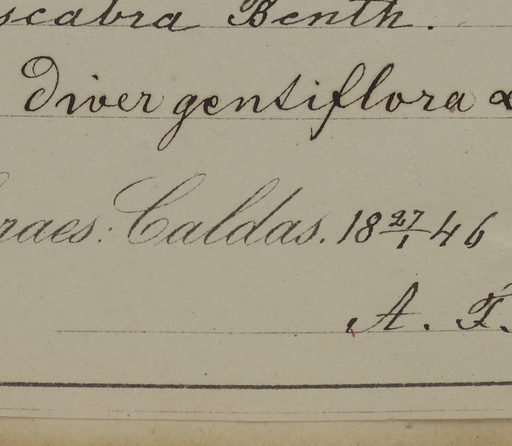 scabra Benth.
divergentiflora α
raes: Caldas. 18 27/1 46
A. F.